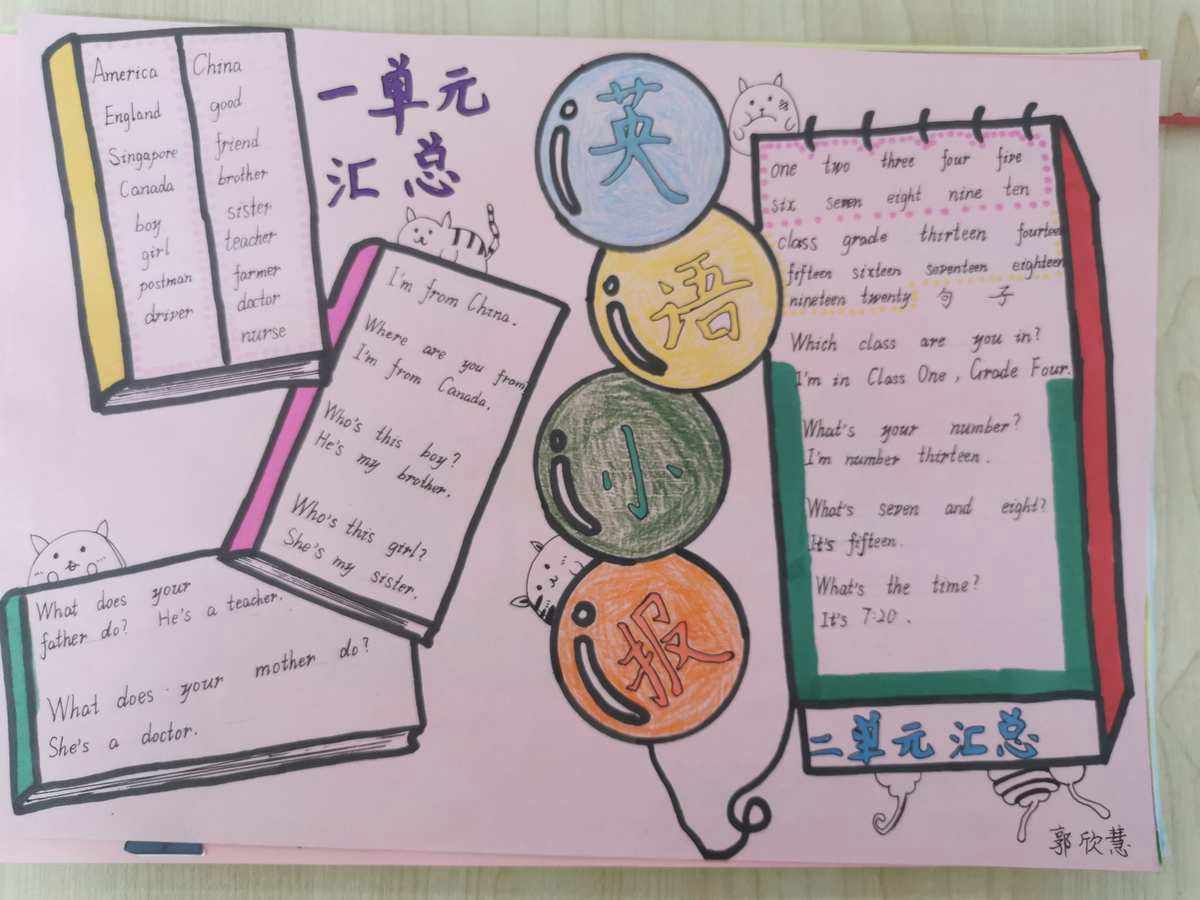 America
England
Singapore
Canada
boy
girl
postman
driver
China
good
friend
brother
sister
teacher
farmer
doctor
nurse
一单元
汇总
I'm from China.
Where are you from?
I'm from Canada.
Who's this boy?
He's my brother.
Who's this girl?
She's my sister.
What does your
father do? He's a teacher.
What does your mother do?
She's a doctor.
英
语
小
报
one two three four five
six seven eight nine ten
class grade thirteen fourteen
fifteen sixteen seventeen eighteen
nineteen twenty 句子
Which class are you in?
I'm in Class One, Grade Four.
What's your number?
I'm number thirteen.
What's seven and eight?
It's fifteen.
What's the time?
It's 7:20.
二单元汇总
郭欣慧